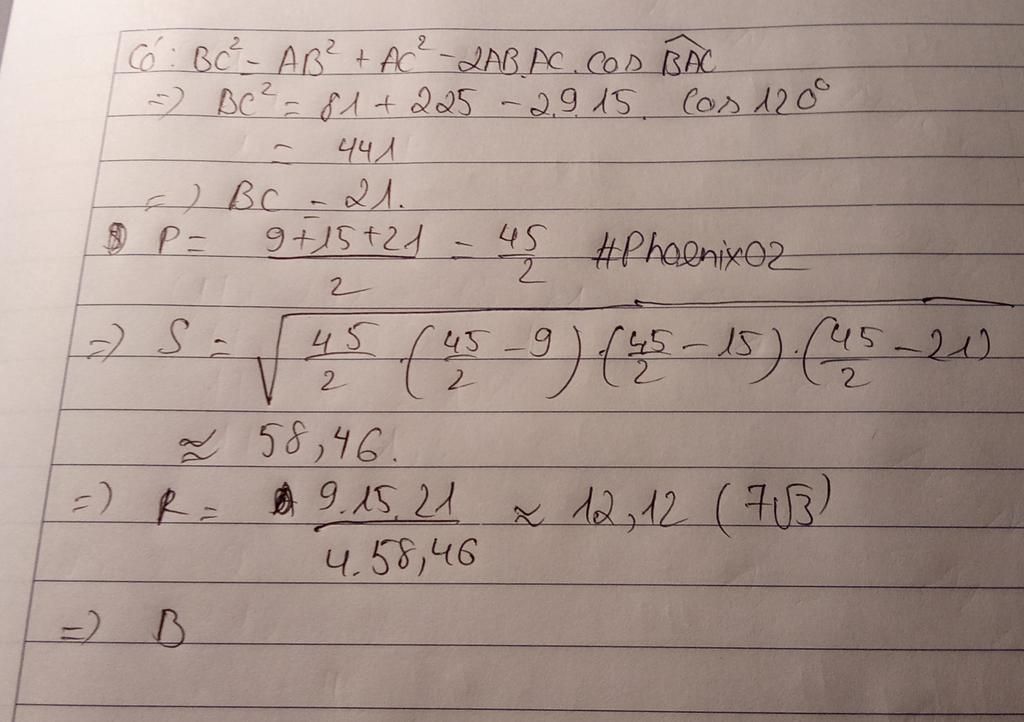 Có: BC² = AB² + AC² - 2AB.AC. cos BAC
=> BC² = 81 + 225 - 2.9.15. cos 120°
= 441
=> BC = 21.
P = (9+15+21)/2 = 45/2 #Phoenix02
=> S = √(45/2 .(45/2 - 9).(45/2 - 15).(45/2 - 21))
≈ 58,46.
=> R = (9.15.21)/(4.58,46) ≈ 12,12 (7√3)
=> B